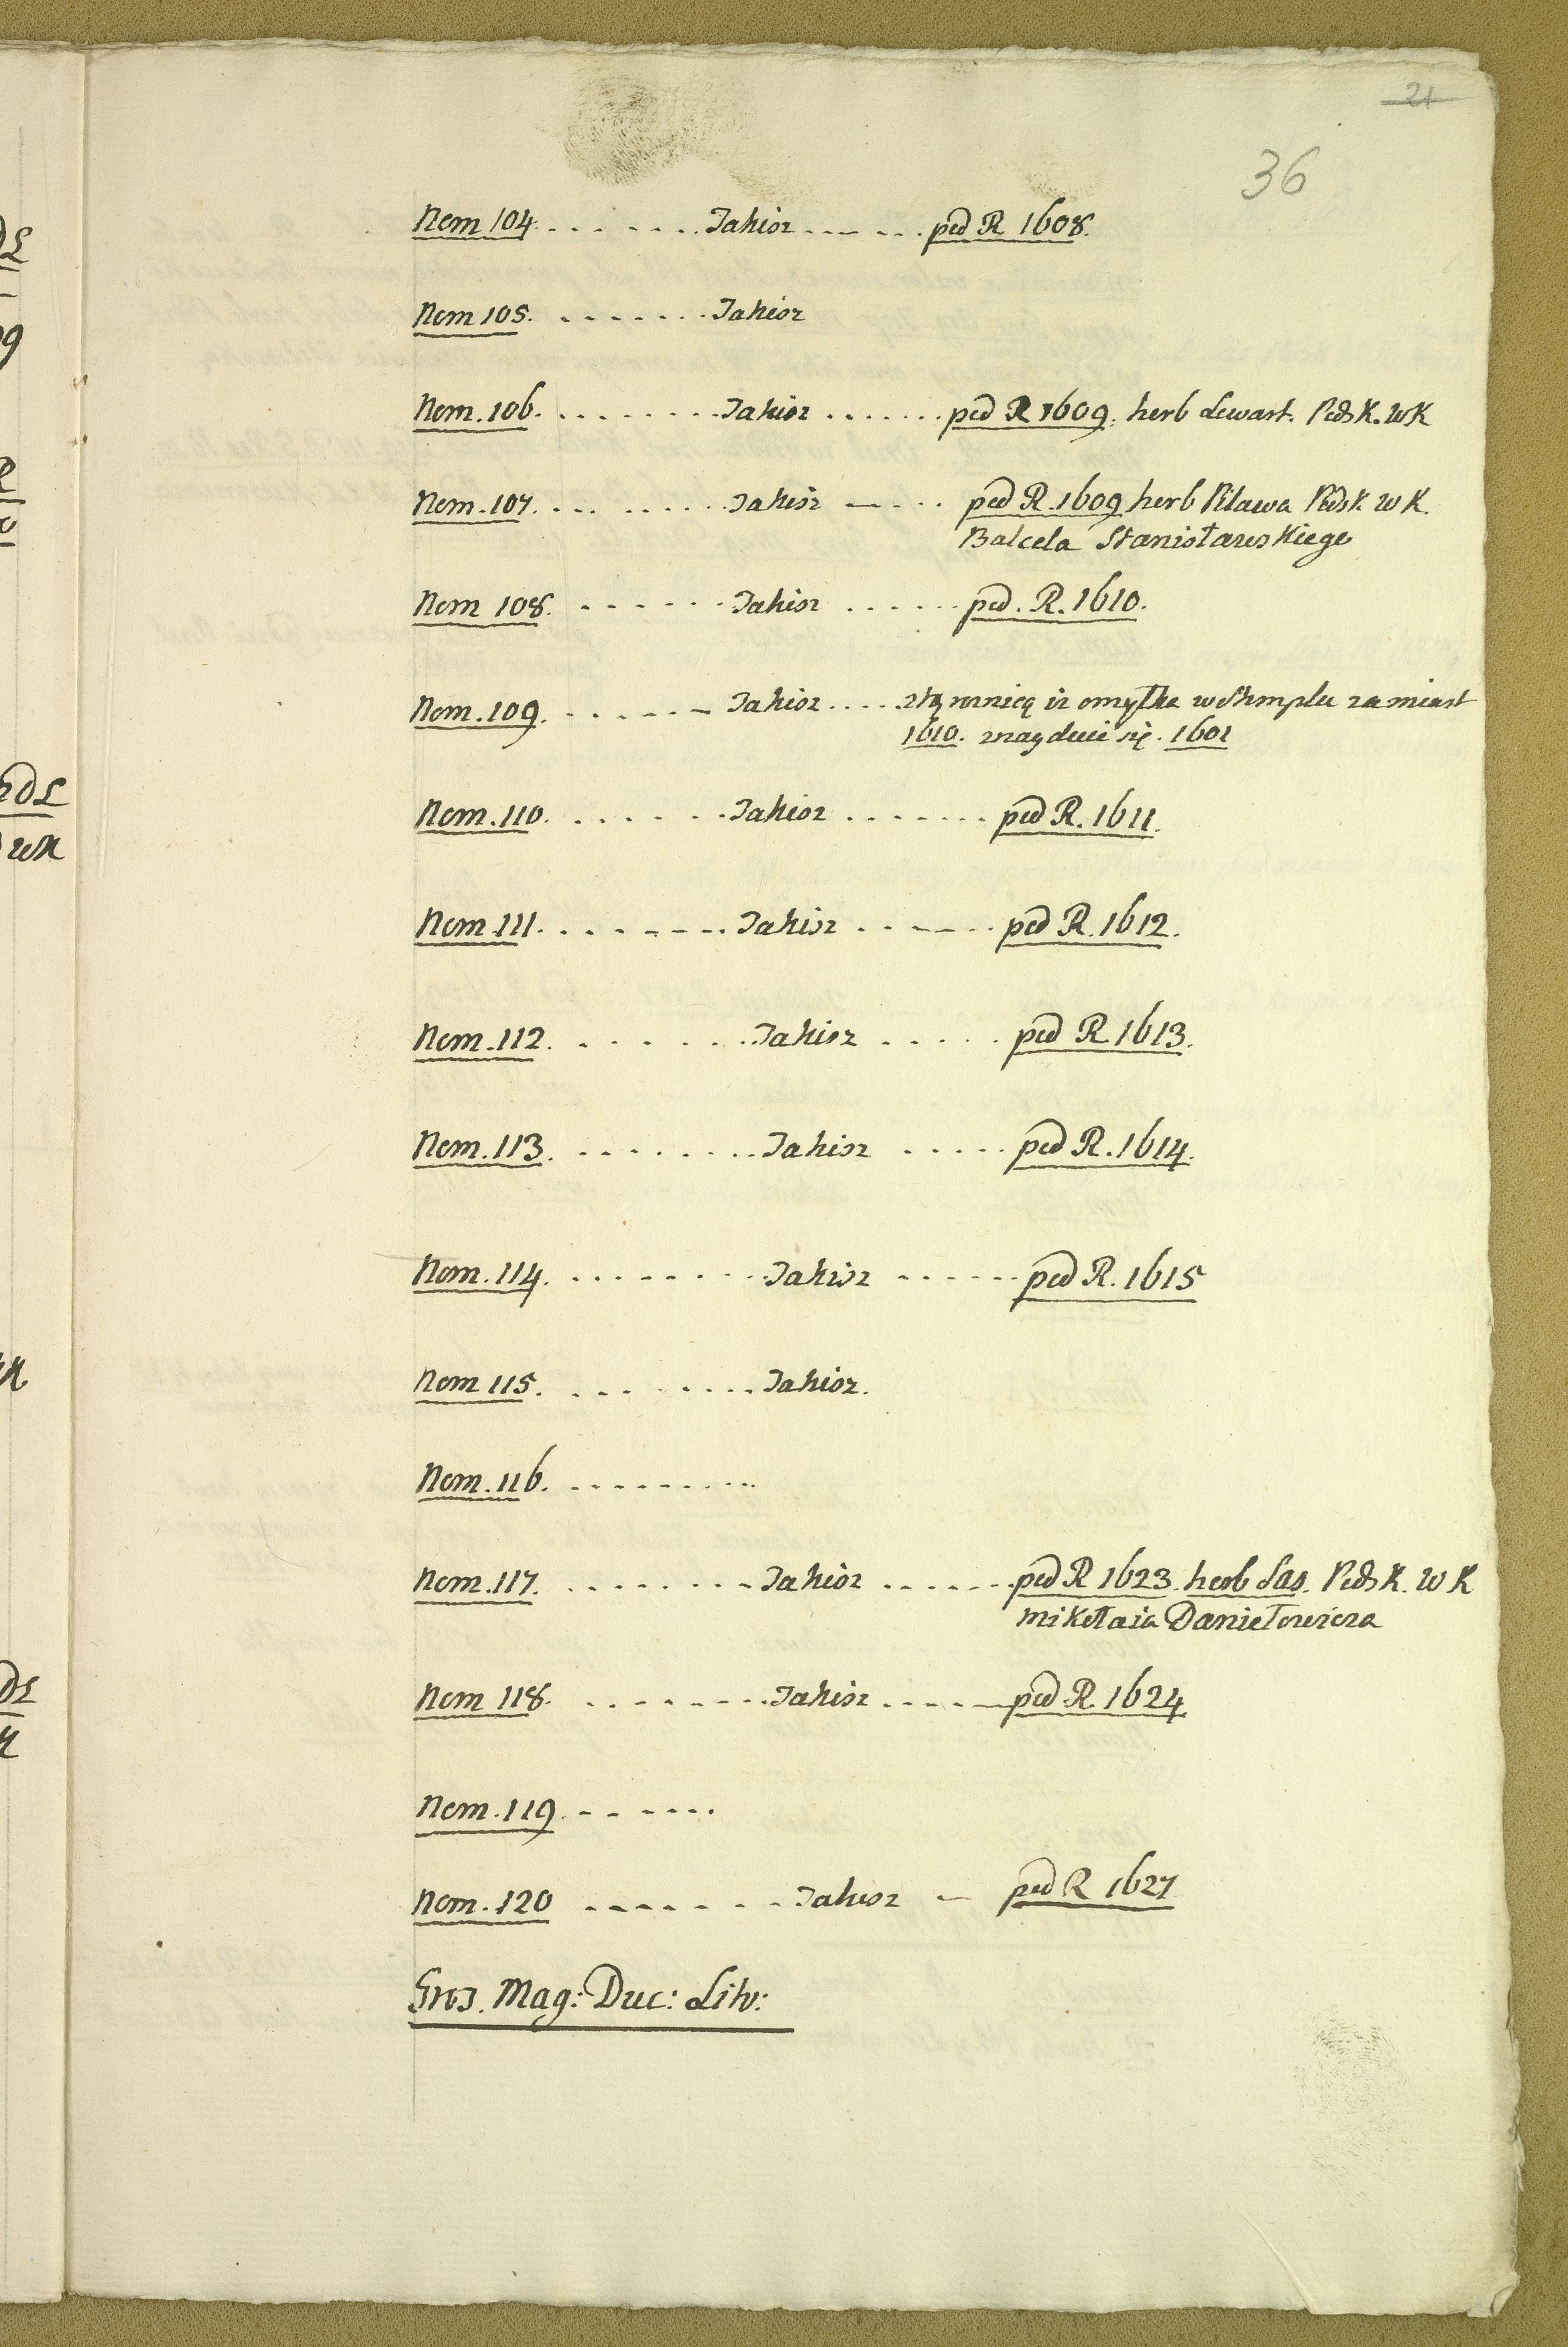 21
36
Nom 104. . . . . . . . Takisz . . . . . . pod R 1608.
Nom 105. . . . . . . . Takisz
Nom. 106. . . . . . . . . Takisz . . . . . . . pod R 1609. herb Lewart. Pods K. WK
Nom. 107. . . . . . . . . Takisz . . . pod R. 1609 herb Pilawa Pods K W K.
Balcela Stanisławskiego
Nom 108. . . . . . . Takisz . . . . . . pod. R. 1610.
Nom. 109. . . . . . . Takisz . . . . z tą rożnicą iż omyłka w Sztmplu zamiast
1610. znayduie się. 1601
Nom. 110. . . . . . . Takisz . . . . . . . pod R. 1611.
Nom. 111. . . . . . . . Takisz . . . . . pod R. 1612.
Nom. 112. . . . . . . Takisz . . . . . pod R 1613.
Nom. 113. . . . . . . . . Takisz . . . . . pod R. 1614.
Nom. 114. . . . . . . . . Takisz . . . . . . pod R. 1615
Nom 115. . . . . . . . Takisz.
Nom. 116. . . . . . . . . .
Nom. 117. . . . . . . . . Takisz . . . . . . pod R 1623. herb Sas. Pods K. W K
Mikołaia Daniełowicza
Nom 118. . . . . . . . . Takisz . . . . . pod R. 1624
Nom. 119. . . . . . .
Nom. 120 . . . . . . . Takisz – pod R 1627
Mag: Duc: Litv: